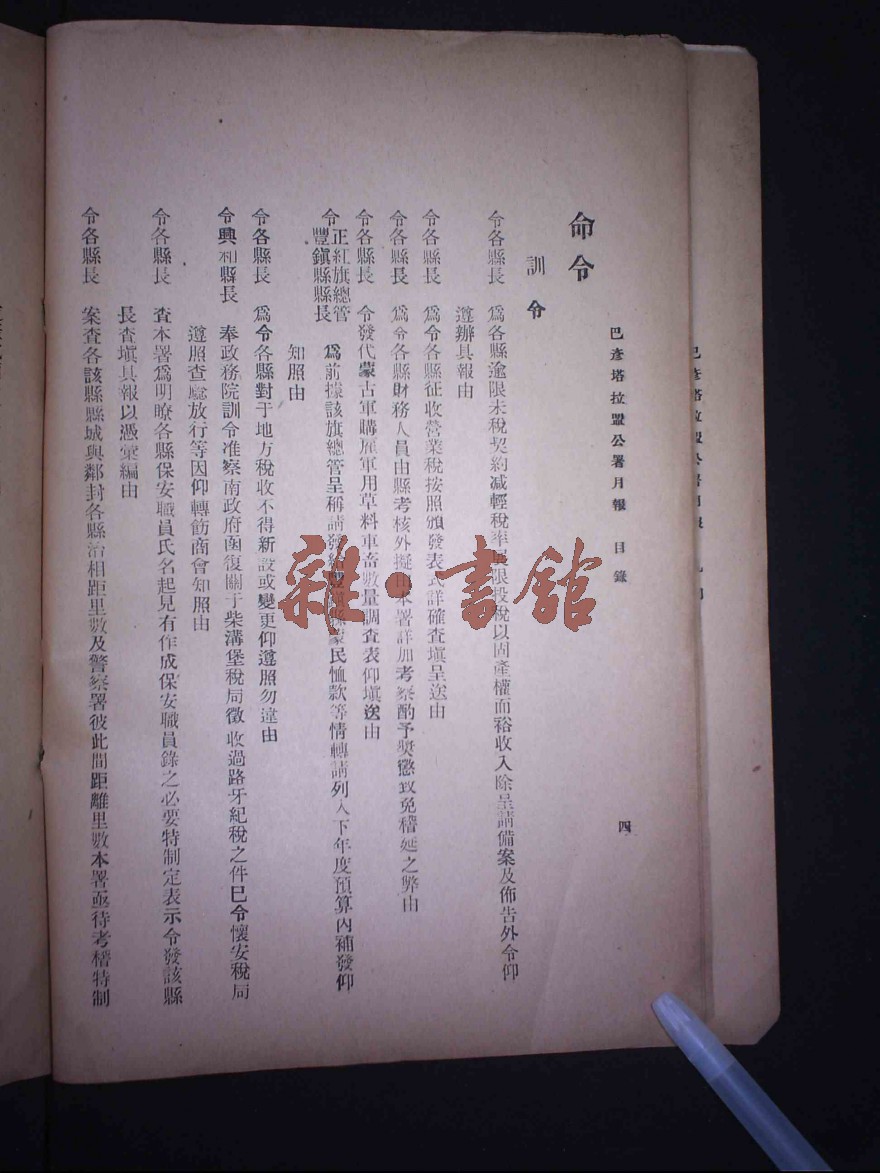 巴彥塔拉盟公署月報　目錄　四
命令
訓令
令各縣長　爲各縣逾限未稅契約減輕稅率展限投稅以固產權而裕收入除呈請備案及佈告外令仰
遵辦具報由
令各縣長　爲令各縣征收營業稅按照頒發表式詳確查塡呈送由
令各縣長　爲令各縣財務人員由縣考核外擬由本署詳加考察酌予獎懲致免稽延之弊由
令各縣長　令發代蒙古軍購雇軍用草料車畜數量調査表仰塡送由
令正紅旗總管豐鎭縣縣長　爲前據該旗總管呈稱請發給豐鎭縣蒙民恤款等情轉請列入下年度預算內補發仰
知照由
令各縣長　爲令各縣對于地方稅收不得新設或變更仰遵照勿違由
令興和縣長　奉政務院訓令准察南政府函復關于柴溝堡稅局徵收過路牙紀稅之件已令懷安稅局
遵照查驗放行等因仰轉飭商會知照由
令各縣長　査本署爲明瞭各縣保安職員氏名起見有作成保安職員錄之必要特制定表示令發該縣
長查塡具報以憑彙編由
令各縣長　案查各該縣縣城與鄰封各縣治相距里數及警察署彼此間距離里數本署亟待考稽特制
雜·書館